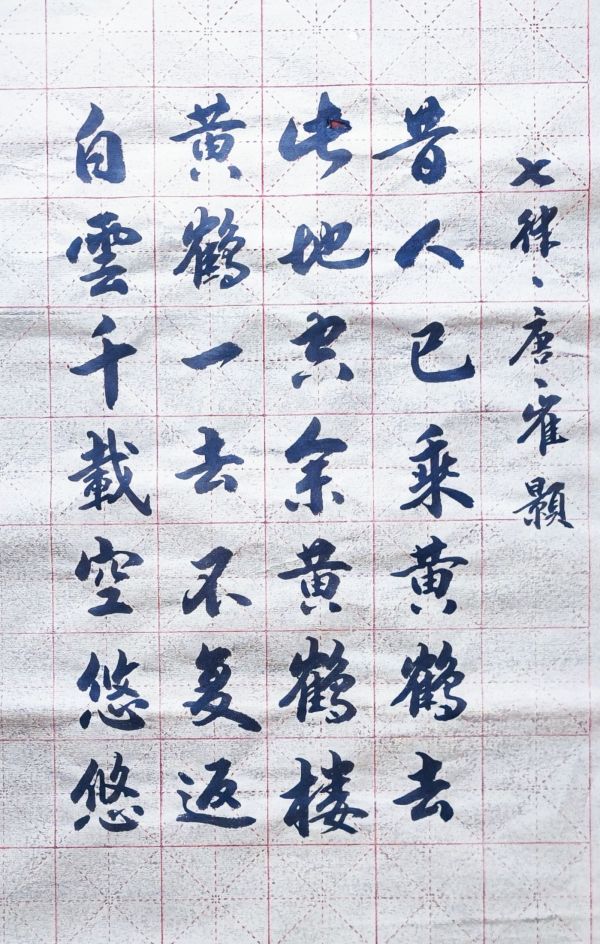 七律、唐、崔顥
昔人已乘黄鶴去
此地空余黄鶴楼
黄鶴一去不复返
白雲千載空悠悠